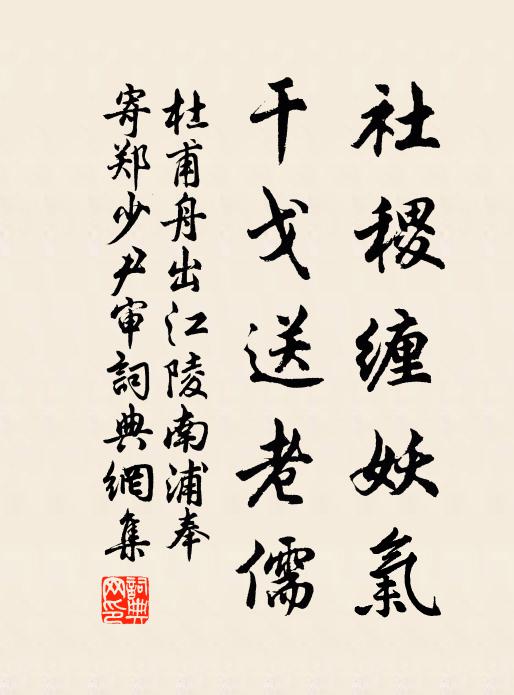 社稷缠妖氣
干戈送老儒
杜甫舟出江陵南浦奉
寄郑少尹审詞典網集
詞典网印